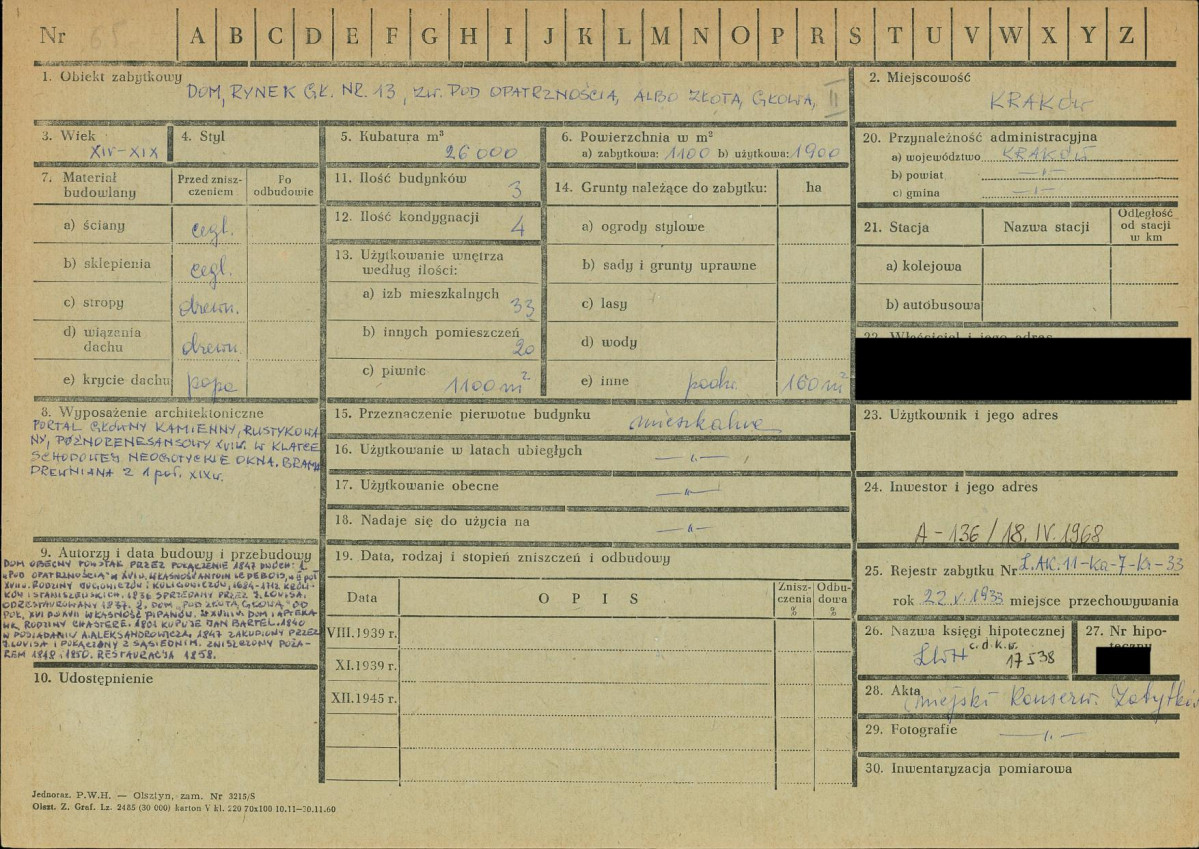 Nr 65 A B C D E F G H I J K L M N O P R S T U V W X Y Z
1. Obiekt zabytkowy
DOM, RYNEK GŁ. NR. 13, ZW. POD OPATRZNOŚCIĄ, ALBO ZŁOTĄ, GŁOWĄ, II
2. Miejscowość
KRAKÓW
3. Wiek
XIV-XIX
4. Styl
5. Kubatura m³
26 000
6. Powierzchnia w m²
a) zabytkowa: 1100 b) użytkowa: 1900
20. Przynależność administracyjna
a) województwo KRAKÓW
b) powiat —„—
c) gmina —„—
7. Materiał budowlany
Przed znisz-
czeniem
Po
odbudowie
a) ściany cegł.
b) sklepienia cegł.
c) stropy drewn.
d) wiązania
dachu drewn.
e) krycie dachu papa
11. Ilość budynków 3
12. Ilość kondygnacji 4
13. Użytkowanie wnętrza
według ilości:
a) izb mieszkalnych 33
b) innych pomieszczeń 20
c) piwnic 1100 m²
14. Grunty należące do zabytku: ha
a) ogrody stylowe
b) sady i grunty uprawne
c) lasy
d) wody
e) inne podw. 160 m²
21. Stacja Nazwa stacji
Odległość
od stacji
w km
a) kolejowa
b) autobusowa
22. Właściciel i jego adres
8. Wyposażenie architektoniczne
PORTAL GŁÓWNY KAMIENNY, RUSTYKOWA-
NY, PÓŹNORENESANSOWY XVII W. W KLATCE
SCHODOWEJ NEOGOTYCKIE OKNA. BRAMA
DREWNIANA Z 1 poł. XIX w.
15. Przeznaczenie pierwotne budynku mieszkalne
16. Użytkowanie w latach ubiegłych —„—
17. Użytkowanie obecne —„—
18. Nadaje się do użycia na —„—
23. Użytkownik i jego adres
24. Inwestor i jego adres
A-136/18.IV.1968
9. Autorzy i data budowy i przebudowy
DOM OBECNY POWSTAŁ PRZEZ POŁĄCZENIE 1847 DWÓCH: 1.
"POD OPATRZNOŚCIĄ" W XVII W. WŁASNOŚĆ ANTONI DE DEBOIS, W 2 poł.
XVII W. RODZINY I KULIGOWICZÓW, 1684-1712
I STANISZEWSKICH. 1836 SPRZEDANY PRZEZ J. LOVISA,
ODRESTAUROWANY 1837. 2. DOM "POD ZŁOTĄ GŁOWĄ" OD
POŁ. XVI DO XVII WŁASNOŚĆ PIPANÓW. DOM I APTEKA
RODZINY CHASTERE. 1801 KUPUJE JAN BARTEL. 1840
W POSIADANIU A. ALEKSANDROWICZA, 1847 ZAKUPIONY PRZEZ
J. LOVISA I POŁĄCZONY Z SĄSIEDNIM. ZNISZCZONY POŻA-
REM 1848 i 1850. RESTAURACJA 1858.
19. Data, rodzaj i stopień zniszczeń i odbudowy
Data OPIS
Znisz-
czenia
%
Odbu-
dowa
%
VIII.1939 r.
XI.1939 r.
XII.1945 r.
25. Rejestr zabytku Nr L.AK.11-Ka-7-Kr-33
rok 22.V.1933 miejsce przechowywania
26. Nazwa księgi hipotecznej
c.d.k.w.
LWH 17538
27. Nr hipo-
teczny
28. Akta Miejski Konserw. Zabytków
29. Fotografie —„—
30. Inwentaryzacja pomiarowa
10. Udostępnienie
Jednoraz. P.W.H. — Olsztyn, zam. Nr 3215/S
Olszt. Z. Graf. Lz. 2485 (30 000) karton V kl. 220 70x100 10.11—30.11.60